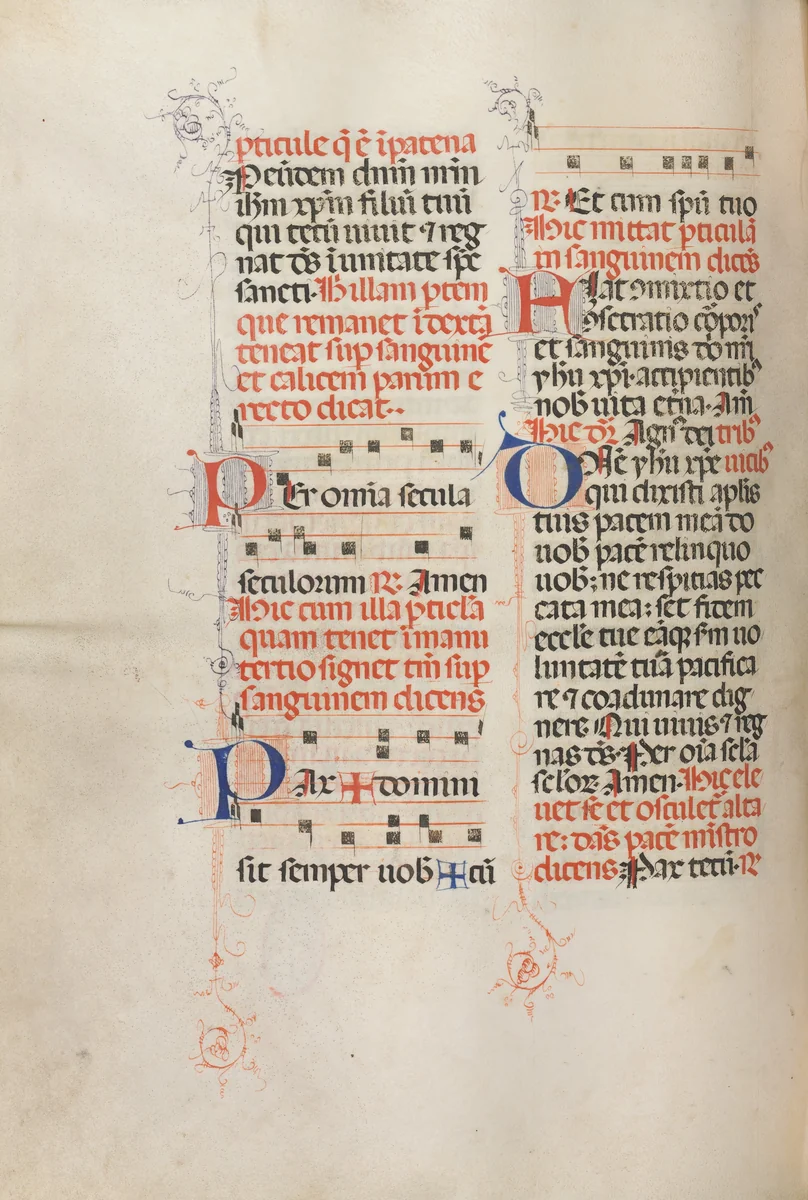 pticule q̃ ẽ ĩ patena
Peũdem dnm̃ nrm̃
ihm̃ xp̃m filiũ tuũ
qui tecũ uiuit ⁊ reg
nat ds̃ ĩ unitate sp̃c
sancti. Hic illam ptem
que remanet ĩ dext̃a
teneat sup sanguinẽ
et calicem parum e
recto dicat..
PEr om̃ia secula
seculorum R̃ Amen
Hic cum illa pticl̃a
quam tenet ĩ manu
tertio signet tm̃ sup
sanguinem dicens
PAx ✠ domini
sit semper uob ✠ cũ
R̃. Et cum sp̃u tuo
Hic mittat pticulã
in sanguinem dicẽs
HEc ꝯmixtio et
ꝯsecratio cõporis
et sanguinis do mi
yhu xp̃i. accipientib
nob uita et̃na. Am̃
Hic dr̃ Agn dei trib
DNẽ yhu xp̃e uicib
qui dixisti ap̃lis
tuis pacem meã do
uob pacẽ relinquo
uob; ne respicias pec
cata mea: set fidem
eccl̃e tue eãq sm uo
luntatẽ tuã pacifica
re ⁊ coadunare dig
nere Qui uiuis ⁊ reg
nas ds̃. Per oĩa sc̃la
sc̃lor. Amen. Hic ele
uet se et osculet̃ alta
re: dãs pacẽ mĩstro
dicens. Pax tecũ. R̃